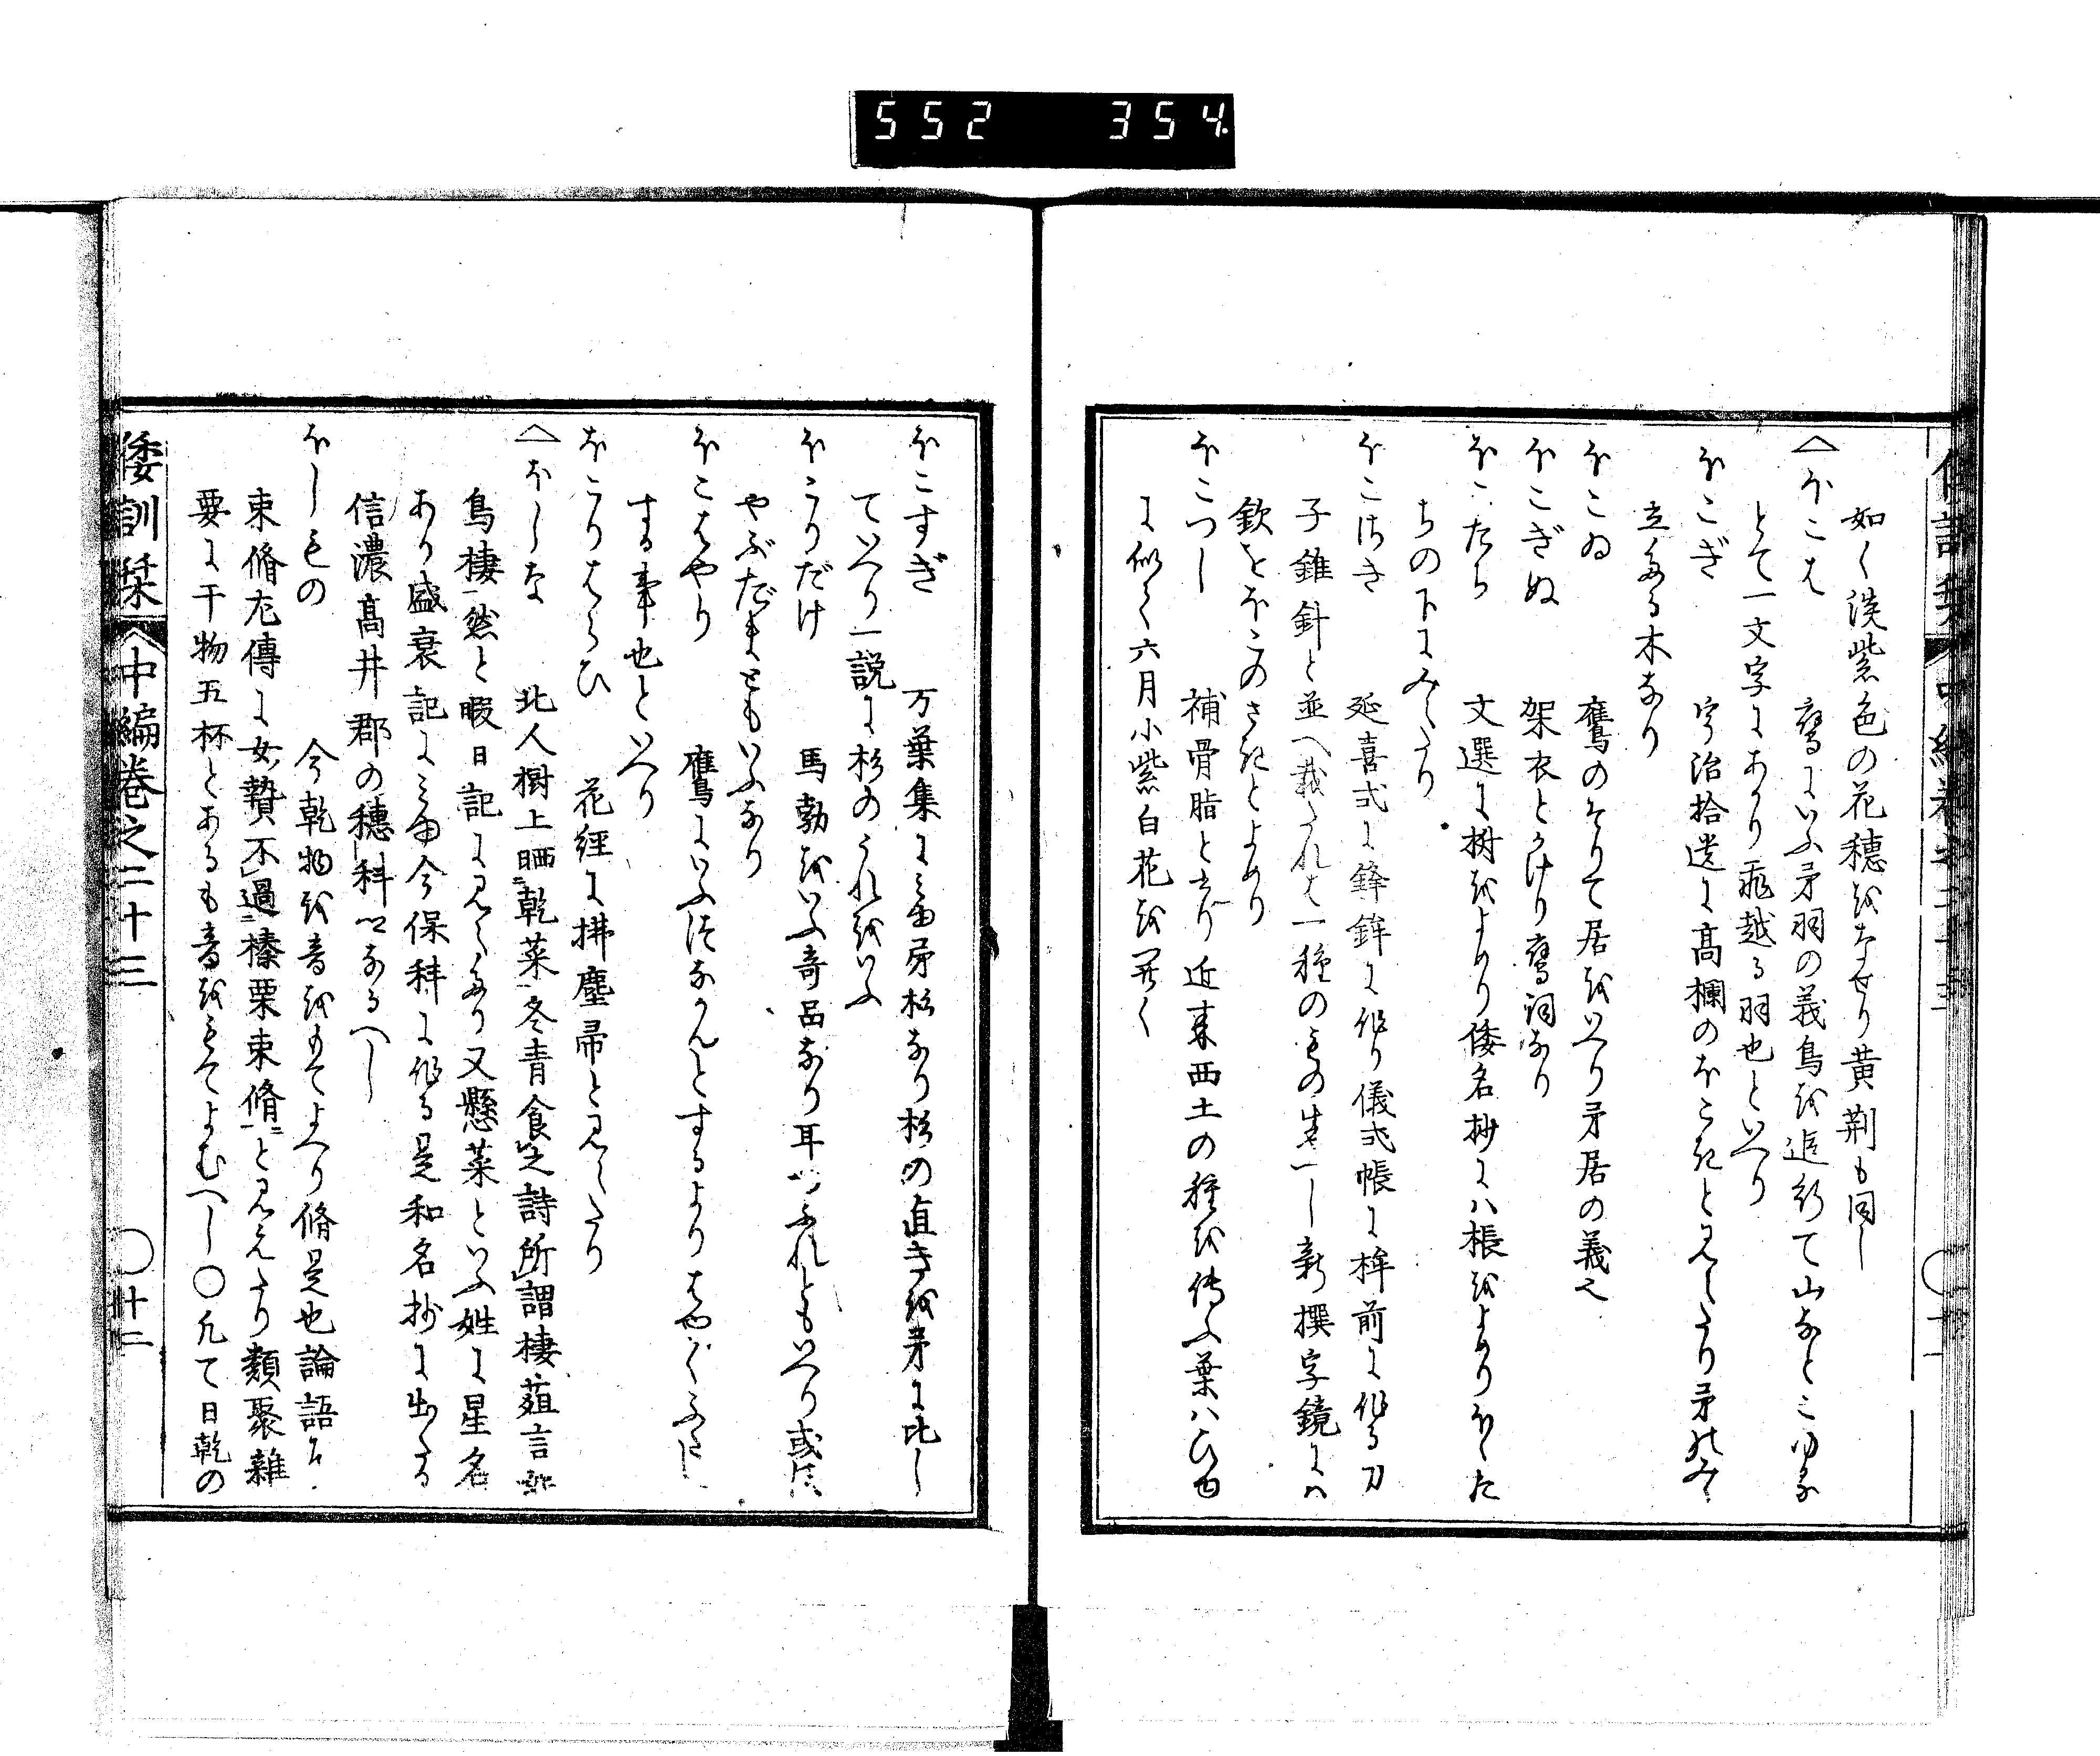 552 354
如く淡紫色の花穂をなせり黄荆も同し
△ほこは 鷹にいふ矛羽の義鳥を追行て山なとこゆる
とて一文字にあかり乖越る羽也といへり
ほこぎ 宇治拾遺に高欄のほこ木と見えたり矛のみ
立たる木なり
ほこゐ 鷹のそりて居をいへり矛居の義也
ほこぎぬ 架衣とかけり鷹詞なり
ほこたち 文選に樹をよめり倭名抄には棖をよめりほうた
ちの下にみえたり
ほこさき 延喜式に鋒鉾に作り儀式帳に桙前に作る刀
子錐針と並へ載たれは一種のもの也し新撰字鏡には
欽をほこのさきとよめり
ほこつし 補骨脂と云り近来西土の種を伝ふ葉は
に似て六月小紫白花を開く
ほこすぎ 万葉集に見ゆ矛杉なり杉の直きを矛に比し
ていへり一説に杉のうれをいふ
ほこりだけ 馬勃をいふ奇品なり耳つふれともいへり或は
やぶだまともいふなり
ほこはやり 鷹にいふ
する事也といへり
ほこりはらひ 花経に拂塵帚と見えたり
△ほしな 北人樹上晒乾菜冬青食之詩所謂棲葅言如
鳥棲然と暇日記に見えたり又懸菜といふ姓に星名
あり盛衰記に見ゆ今保科に作る是和名抄に出たる
信濃高井郡の穂科なるへし
ほしもの 今乾物を音をもてよへり脩是也論語に
束脩左傳に女贄不過榛栗束脩と見えたり類聚雜
要に干物五杯とあるも音をもてよむへし〇凡て日乾の
倭訓栞 中編巻之二十三 〇十二